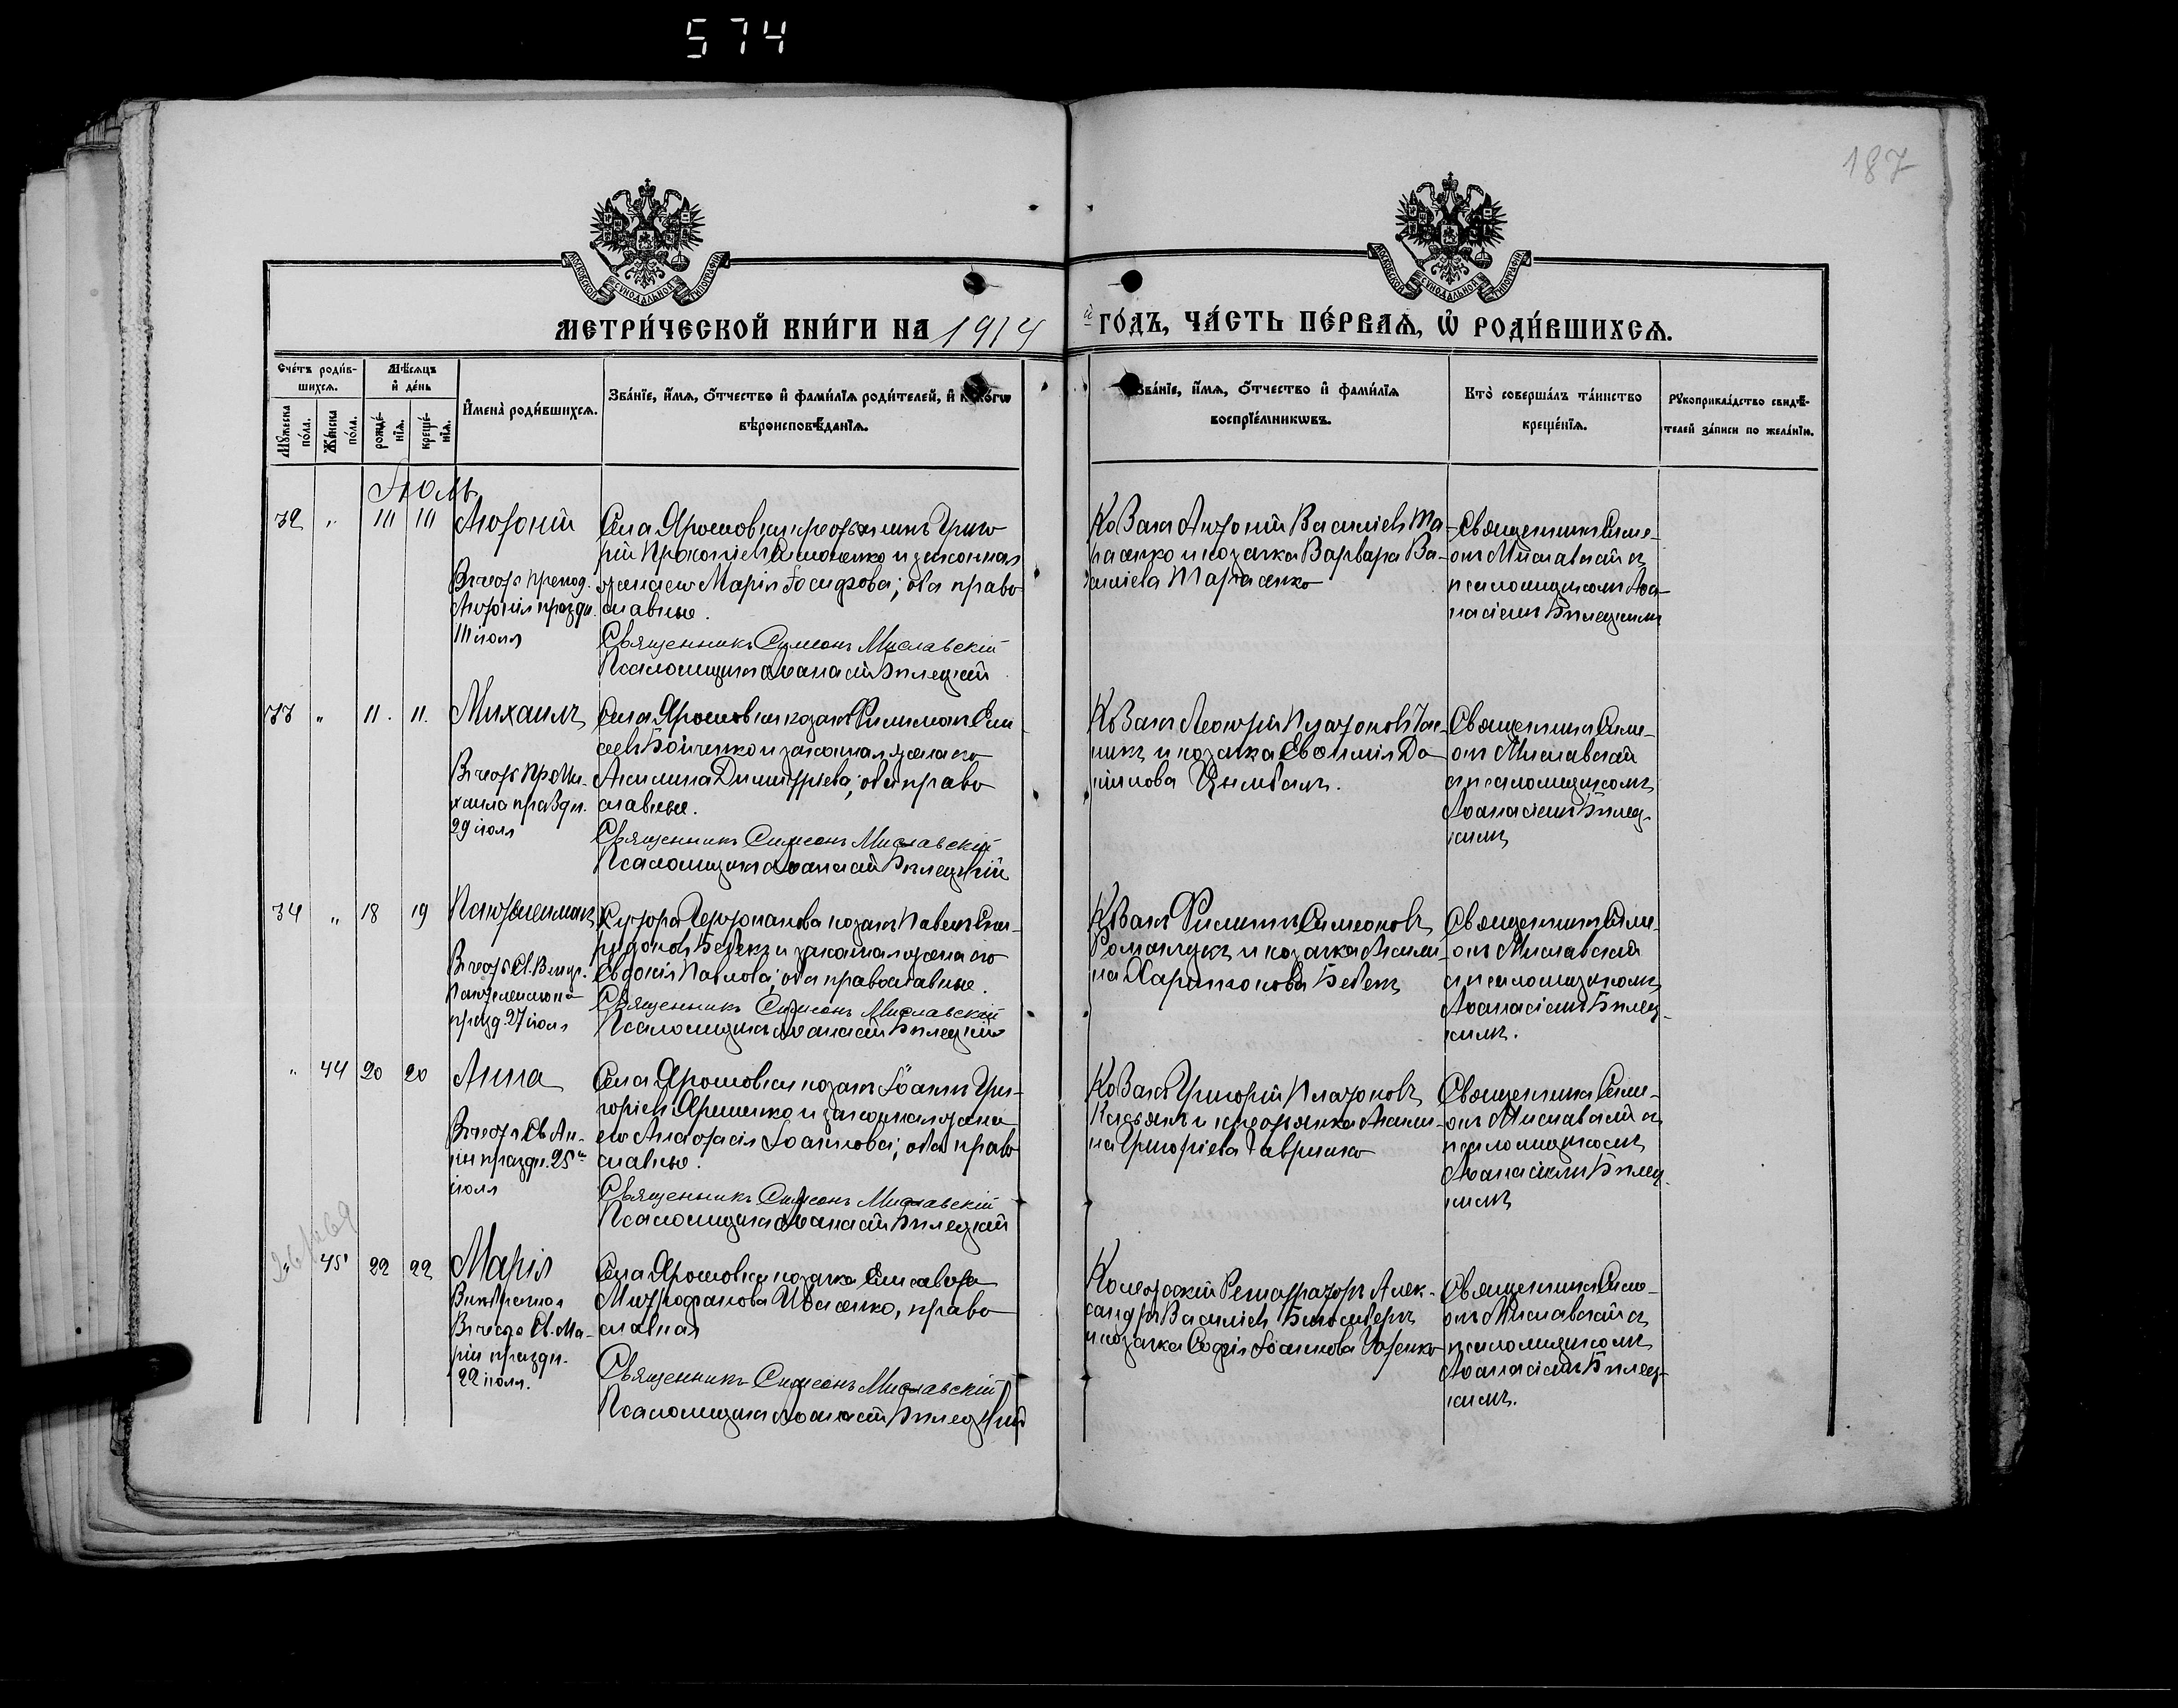 574
187
МОСКОВСКОЙ СѴНОДАЛЬНОЙ ТИПОГРАФІИ
МОСКОВСКОЙ СѴНОДАЛЬНОЙ ТИПОГРАФІИ
МЕТРИ́ЧЕСКОЙ КНИ́ГИ НА 1914
й ГО́ДЪ, ЧА́СТЬ ПЕ́РВАѦ, Ѡ҆ РОДИ́ВШИХСѦ.
Счéтъ роди́в-
шихсѧ.
Мꙋ́жеска
по́ла.
Же́нска
по́ла.
Мѣ́сѧцъ
и҆ де́нь
рожде́-
нїѧ.
креще́-
нїѧ.
И҆мена̀ роди́вшихсѧ.
Зва́нїе, и҆́мѧ, ѻ҆́тчество и҆ фами́лїѧ роди́телей, и҆ како́гѡ
вѣроисповѣ́данїѧ.
Зва́нїе, и҆́мѧ, ѻ҆́тчество и҆ фами́лїѧ
воспрїе́мникѡвъ.
Кто̀ соверша́лъ та́инство
креще́нїѧ.
Рꙋкоприкла́дство свидѣ́-
телей за́писи по жела́нїю.
Іюль
32 " 10 10 Антоній
Въ честь препод.
Антонія праздн.
10 іюля
Села Ярошовки крестьянинъ Григо
рій Прокопіевъ Симоненко и законная
жена его Марія Іосифова; оба право
славные.
Священникъ Симеонъ Миславскій
Псаломщикъ Аѳанасій Билецкій
Козакъ Антоній Василіевъ Та-
расенко и козачка Варвара Ва-
силіева Тарасенко
Священникъ Симе-
онъ Миславскій съ
псаломщикомъ Аѳа-
насіемъ Билецкимъ
33 " 11. 11. Михаилъ
Въ честь Пр Ми-
хаила праздн.
29 іюля
Села Ярошовки козакъ Филимонъ Ели
сеевъ Бойченко и законная жена его
Акилина Димитріева; оба право
славные.
Священникъ Симеонъ Миславскій
Псаломщикъ Аѳанасій Билецкій
Козакъ Леонтій Платоновъ
и козачка Евфимія Да
ніилова Цымбалъ.
Священникъ Симе-
онъ Миславскій
съ псаломщикомъ
Аѳанасіемъ Билец-
кимъ
34 " 18 19 Пантелеимонъ
Въ честь Св. Влмуч.
Пантелеимона
празд. 27 іюля
Хутора козакъ Павелъ Спи-
ридоновъ Бебехъ и законная жена его
Евдокія Павлова; оба православные.
Священникъ Симеонъ Миславскій
Псаломщикъ Аѳанасій Билецкій
Козакъ Филиппъ Симеоновъ
Романчукъ и козачка Акили-
на Харитонова Бебехъ
Священникъ Симе-
онъ Миславскій
съ псаломщикомъ
Аѳанасіемъ Билец-
кимъ.
" 44 20 20 Анна
Въ честь Св Ан-
ны праздн. 25го
іюля
Села Ярошовки козакъ Іоаннъ Гри-
горіевъ Яременко и законная жена
его Анастасія Іоаннова; оба право
славные.
Священникъ Симеонъ Миславскій
Псаломщикъ Аѳанасій Билецкій
Козакъ Григорій Платоновъ
Касьянъ и крестьянка Акили-
на Григоріева Гавришко
Священникъ Симе-
онъ Миславскій съ
псаломщикомъ
Аѳанасіемъ Билец-
кимъ
" 45 22 22 Марія
Внѣбрачная
Въ честь Св. Ма-
ріи праздн.
22 іюля.
Села Ярошовки козачка Елисавета
Митрофанова Ивасенко, право
славная
Священникъ Симеонъ Миславскій
Псаломщикъ Аѳанасій Билецкій
Колежскій Регистраторъ Алек-
сандръ Василіевъ
и козачка Софія Іоаннова
Священникъ Симе-
онъ Миславскій съ
псаломщикомъ
Аѳанасіемъ Билец-
кимъ.